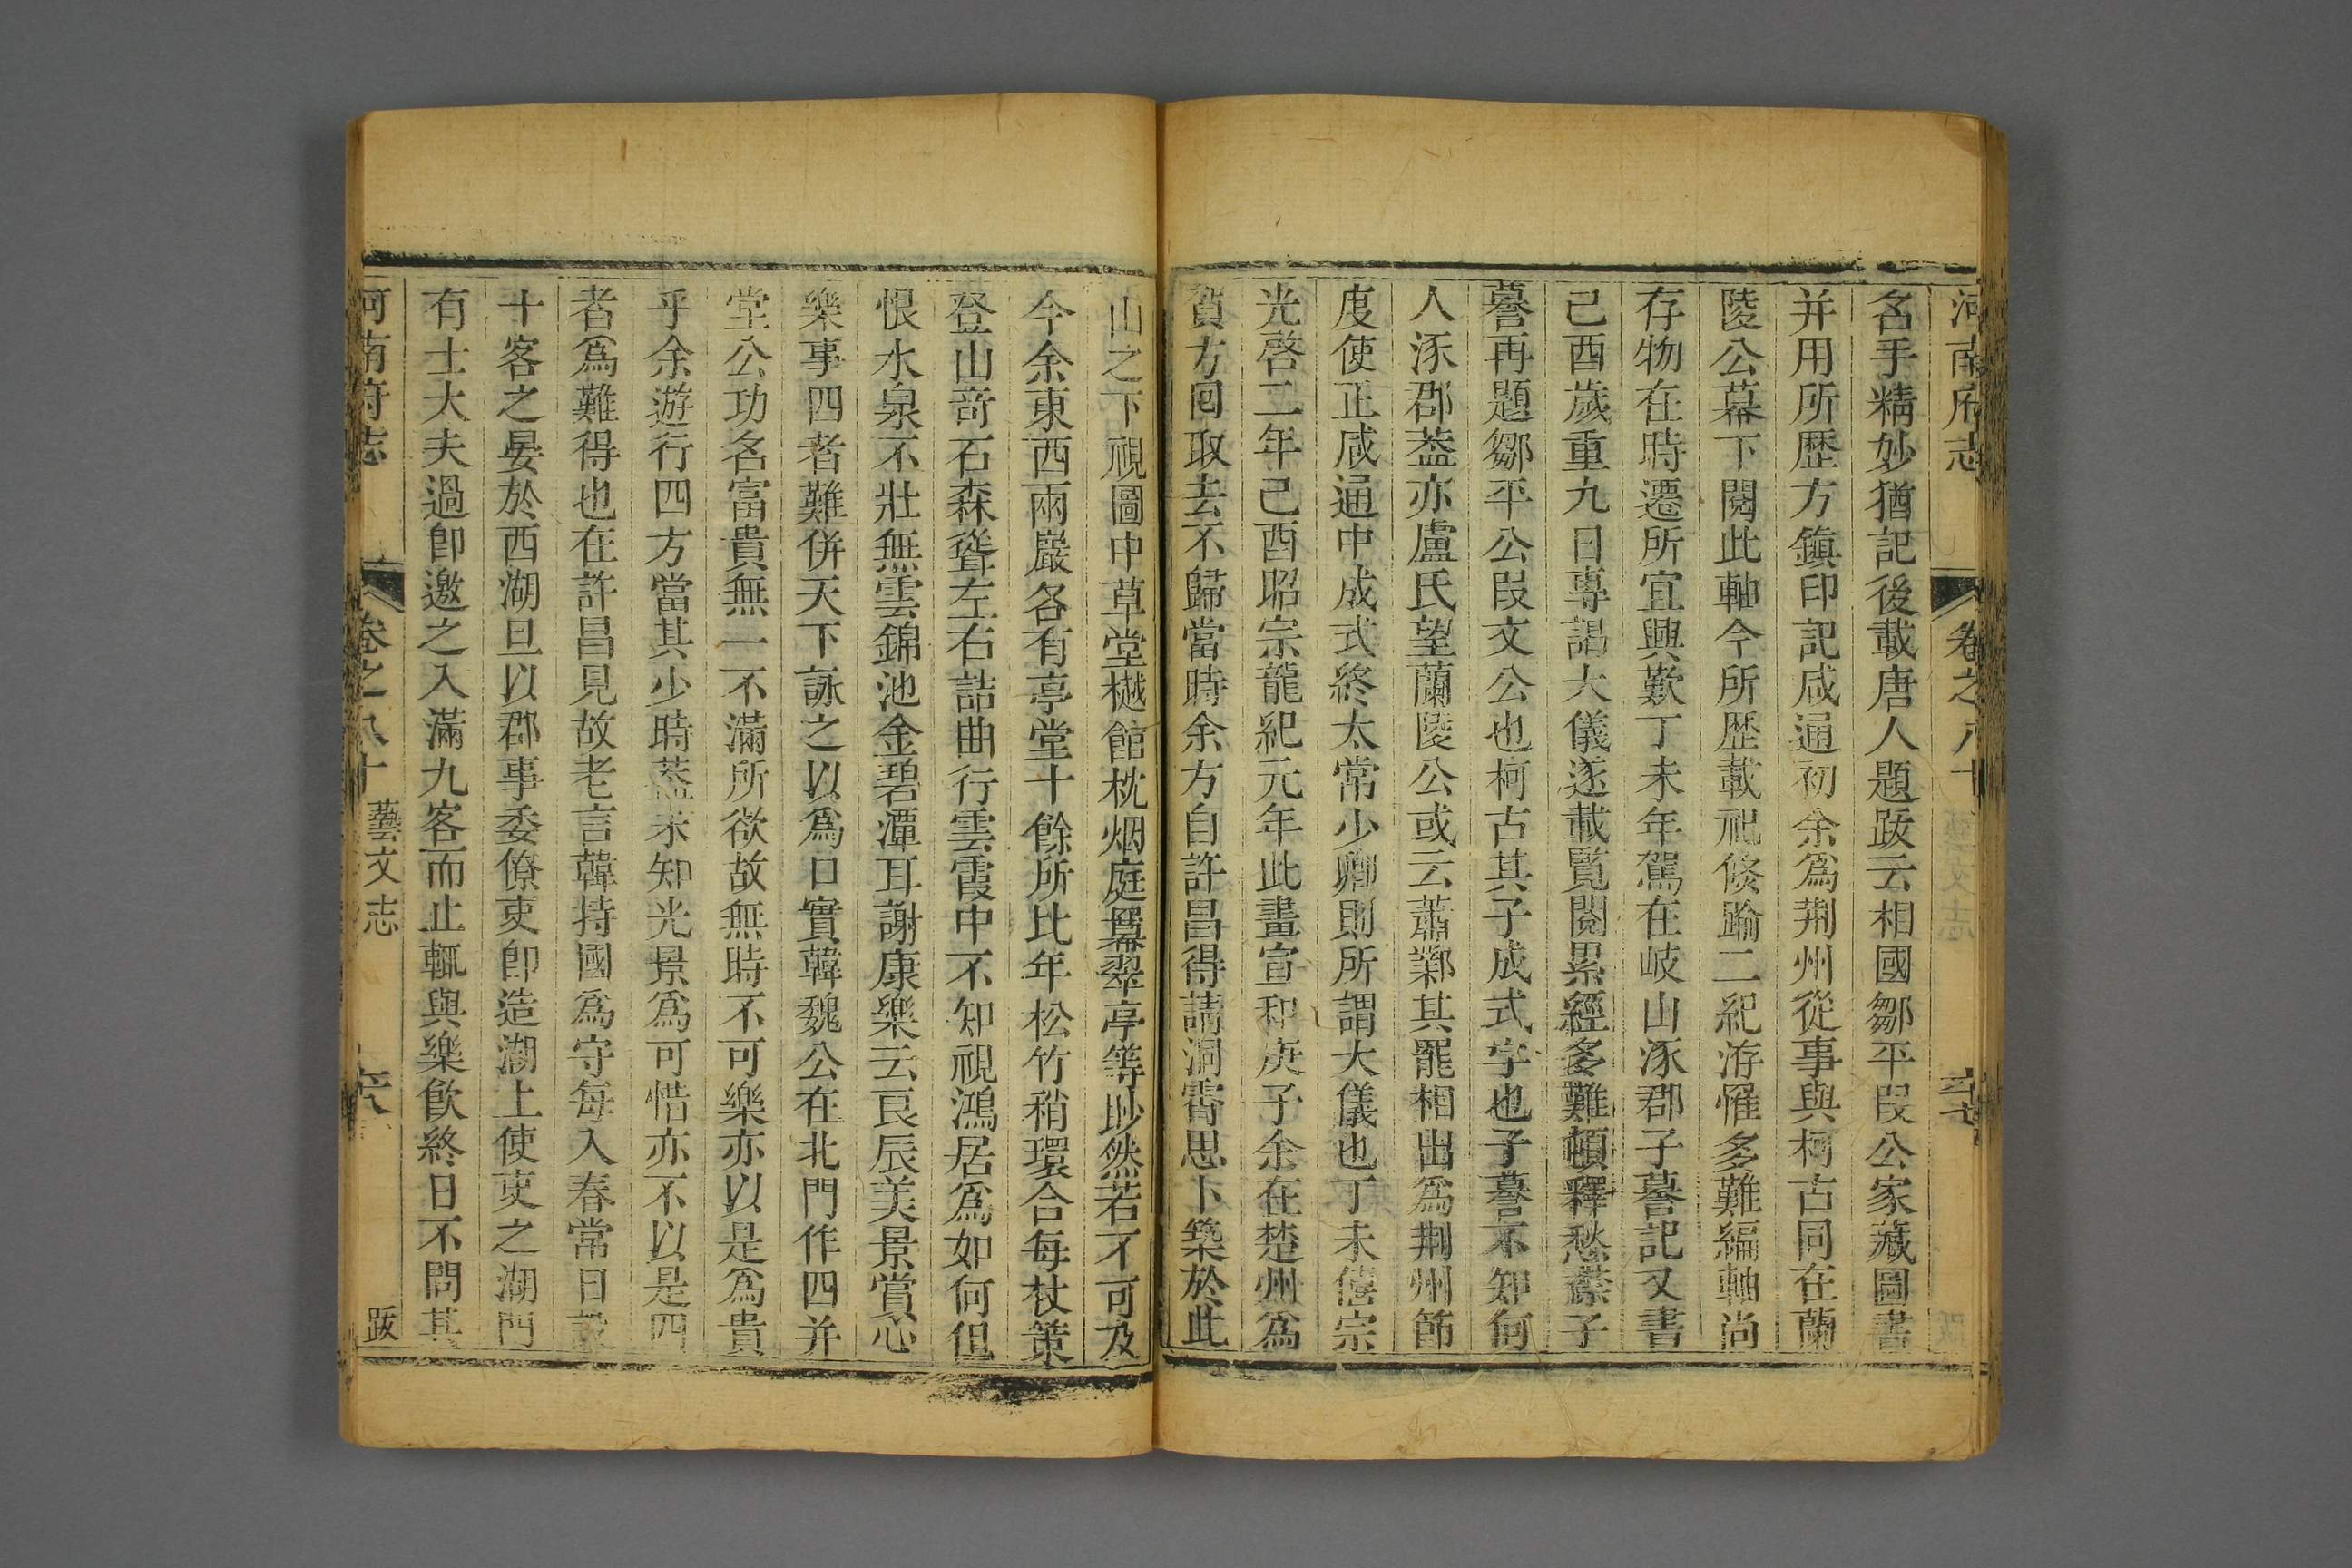 河南府志 卷之八十
名手精妙猶記後載唐人題跋云相國鄒平段公家藏圖書
并用所歷方鎮印記咸通初余為荆州從事與柯古同在蘭
陵公幕下閱此軸今所歷載祀倐踰二紀洊罹多難編軸尚
存物在時遷所宜興歎丁未年駕在岐山涿郡子謩記又書
己酉歲重九日專謁大儀遂載覽閱累經多難頓釋愁襟子
謩再題鄒平公段文公也柯古其子成式字也子謩不知何
人涿郡葢亦盧氏望蘭陵公或云蕭鄴其罷相出為荆州節
度使正咸通中成式終太常少卿則所謂大儀也丁未僖宗
光啓二年己酉昭宗龍紀元年此畫宣和庚子余在楚州為
賀方囘取去不歸當時余方自許昌得請洞霄思卜築於此
山之下視圖中草堂樾館枕烟庭羃翠亭等眇然若不可及
今余東西兩巖各有亭堂十餘所比年松竹稍環合每杖策
登山竒石森聳左右詰曲行雲霞中不知視鴻居為如何但
恨水泉不壯無雲錦池金碧潭耳謝康樂云良辰美景賞心
樂事四者難併天下詠之以為口實韓魏公在北門作四并
堂公功名富貴無一不滿所欲故無時不可樂亦以是為貴
乎余遊行四方當其少時葢未知光景為可惜亦不以是四
者為難得也在許昌見故老言韓持國為守每入春常日設
十客之宴於西湖旦以郡事委僚吏卽造湖上使吏之湖門
有士大夫過卽邀之入滿九客而止輒與樂飲終日不問其
河南府志 卷之八十 藝文志 跋